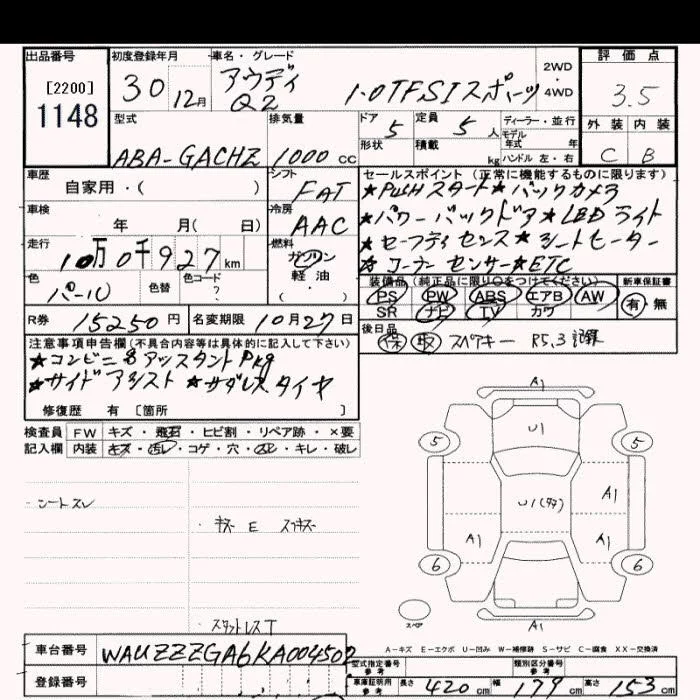 出品番号
[2200]
1148
初度登録年月
30 12月
車名・グレード
アウディ
Q2
1.0TFSIスポーツ
2WD
4WD
評価点
3.5
外装 内装
C B
型式
ABA-GACHZ
排気量
1000 cc
ドア
5
定員
5 人
形状
積載
kg
ディーラー・並行
モデル年式 年
ハンドル 左・右
車歴
自家用・( )
シフト
FAT
車検
年 月( 日)
冷房
AAC
走行
10万0千927km
燃料
ガソリン
軽油・
( )
色
パール
色替
色コード
?
セールスポイント(正常に機能するものに限ります)
★PUSHスタート★バックカメラ
★パワーバックドア★LEDライト
★セーフティセンス★シートヒーター
★コーナーセンサー★ETC
装備品(純正品に限り○をつけてください)
PS PW ABS エアB AW
SR ナビ TV カワ
新車保証書
有 無
R券 15250円
名変期限 10月27日
後日品
保 取 スペアキー R5.3記録
注意事項申告欄(不具合内容等は具体的に記入して下さい)
★サイドアシスト ★サダレスタイヤ
修復歴 有 [箇所 ]
検査員記入欄
FW キズ・飛石・ヒビ割・リペア跡・×要
内装 キズ・汚レ・コゲ・穴・スレ・キレ・破レ
シートスレ
スタットレスT
A1
U1
5 5
A1
U1(タタ)
A1 A1
6 6
A1
スペア
A-キズ E-エクボ U-凹み W-補修跡 S-サビ C-腐食 XX-交換済
車台番号
WAUZZZGA6KA004502
登録番号
型式指定番号 参考
類別区分番号 参考
車庫証明用 参考
長さ 420 cm 幅 179 cm 高さ 153 cm